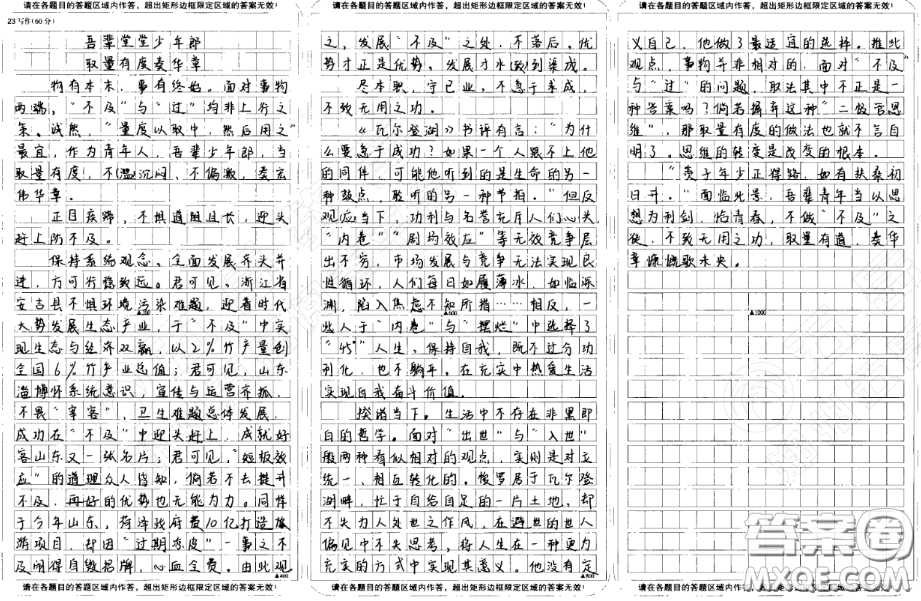 请在各题目的答题区域内作答，超出矩形边框限定区域的答案无效！
23 写作(60分)
吾辈堂堂少年郎
取量有度奏华章
物有本末，事有终始。面对事物
两端，“不及”与“过”均非上行之
策。诚然，“量度以取中，然后用之”
最宜，作为青年人，吾辈少年郎，当
取量有度，不沉闷、不偏激，奏宏
伟华章。
正目疾蹄，不惧道阻且长，迎头
赶上防不及。
保持系统观念、全面发展齐头并
进，方可行稳致远。君可见，浙江省
安吉县不惧环境污染难题，迎着时代
大势发展生态产业，于“不及”中实
现生态与经济双赢，以2%竹产量创
全国6%竹产业总值；君可见，山东
淄博怀系统意识，宣传与运营齐抓，
不畏“宰客”、卫生难题总体发展，
成功在“不及”中迎头赶上，成就好
客山东又一张名片；君可见，“短板效
应”的道理众人皆知，倘若不去提升
不及，再好的优势也无能为力。同样
于今年山东，菏泽政府费10亿打造旅
游项目，却因“过期态度”一事之不
及闹得自毁品牌，心血全费。由此观
▲400
请在各题目的答题区域内作答，超出矩形边框限定区域的答案无效！
请在各题目的答题区域内作答，超出矩形边框限定区域的答案无效！
之，发展“不及”之处，不落后，优
势才正是优势，发展才水到渠成。
尽本职，守己业，不急于求成，
不致无用之功。
《瓦尔登湖》书评有言：“为什
么要急于成功？如果一个人跟不上他
的同伴，可能他听到的是生命的另一
种鼓点，聆听的另一种节拍。”但反
观应当下，功利与名誉充斥人们心头，
“内卷”“剧场效应”等无效竞争层
出不穷，市场发展与竞争无法实现良
性循环，人们每日如履薄冰，如临深
渊，陷入焦虑不知所措……相反，一
▲600
些人于“内卷”与“摆烂”中选择了
人生，保持自我，既不过分功
利化，也不躺平。在充实中热爱生活
实现自我奋斗价值。
揆诸当下。生活中不存在非黑即
白的哲学。面对“出世”与“入世”
般两种看似相对的观点，实则是对立
统一、相互转化的。梭罗居于瓦尔登
湖畔，忙于自给自足的一片土地，却
不失为人处世之作风，在避世的世人
偏见中不失思考，将人生在一种更为
充实的方式中实现其意义。他没有定
▲800
请在各题目的答题区域内作答，超出矩形边框限定区域的答案无效！
请在各题目的答题区域内作答，超出矩形边框限定区域的答案无效！
义自己，他做了最适宜的选择。推此
观点，事物并非相对的，面对“不及”
与“过”的问题，取法其中不正是一
种答案吗？倘若摒弃这种“二极管思
维”，那取量有度的做法也就不言自
明了。思维的转变是改变的根本。
“莫于年少正得路，如有扶桑初
日升。”面临光景，吾辈青年当以思
想为利剑，恰青春，不做“不及”之
徒，不致无用之功，取量有道，奏华
章慷慨歌未央。
▲1000
答案圈
MXQE.COM
请在各题目的答题区域内作答，超出矩形边框限定区域的答案无效！